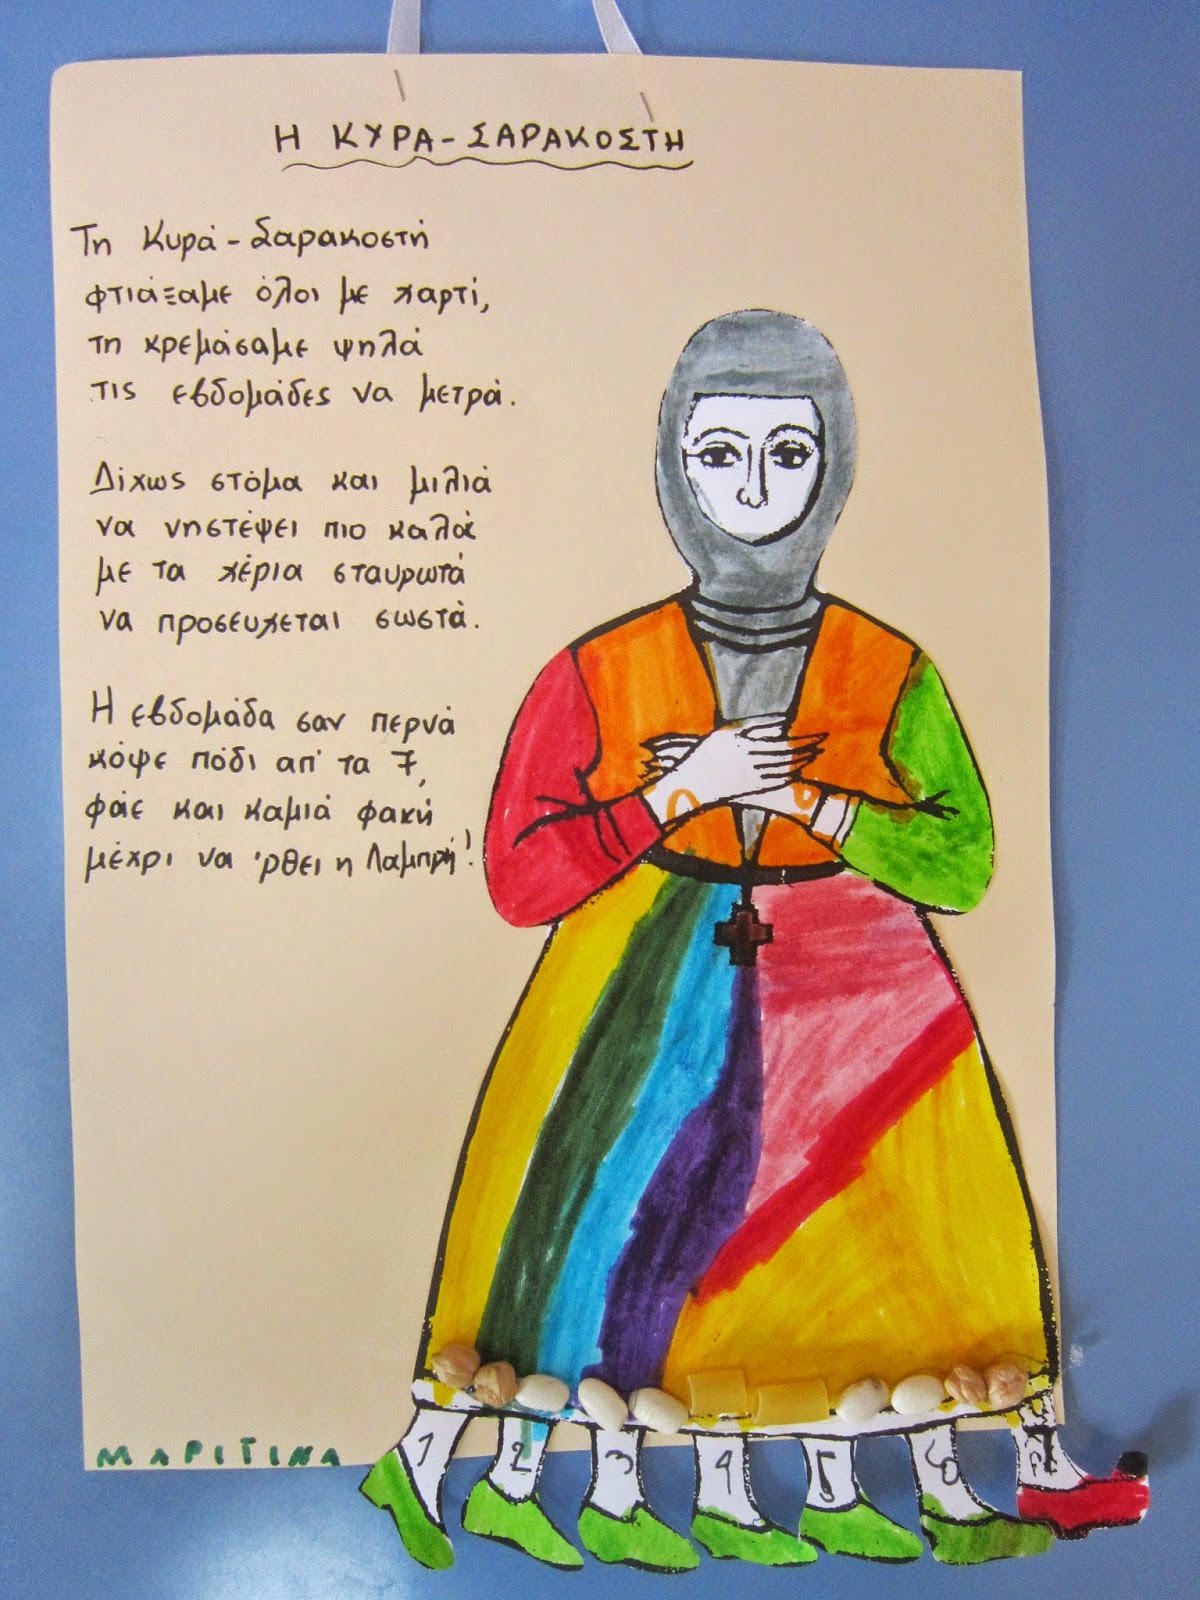 Η ΚΥΡΑ-ΣΑΡΑΚΟΣΤΗ
Τη Κυρά-Σαρακοστή
φτιάξαμε όλοι με χαρτί,
τη κρεμάσαμε ψηλά
τις εβδομάδες να μετρά.
Δίχως στόμα και μιλιά
να νηστέψει πιο καλά
με τα χέρια σταυρωτά
να προσεύχεται σωστά.
Η εβδομάδα σαν περνά
κόψε πόδι απ' τα 7,
φάε και καμιά φακή
μέχρι να 'ρθει η Λαμπρή!
ΜΑΡΙΤΙΝΑ
1 2 3 4 5 6 7